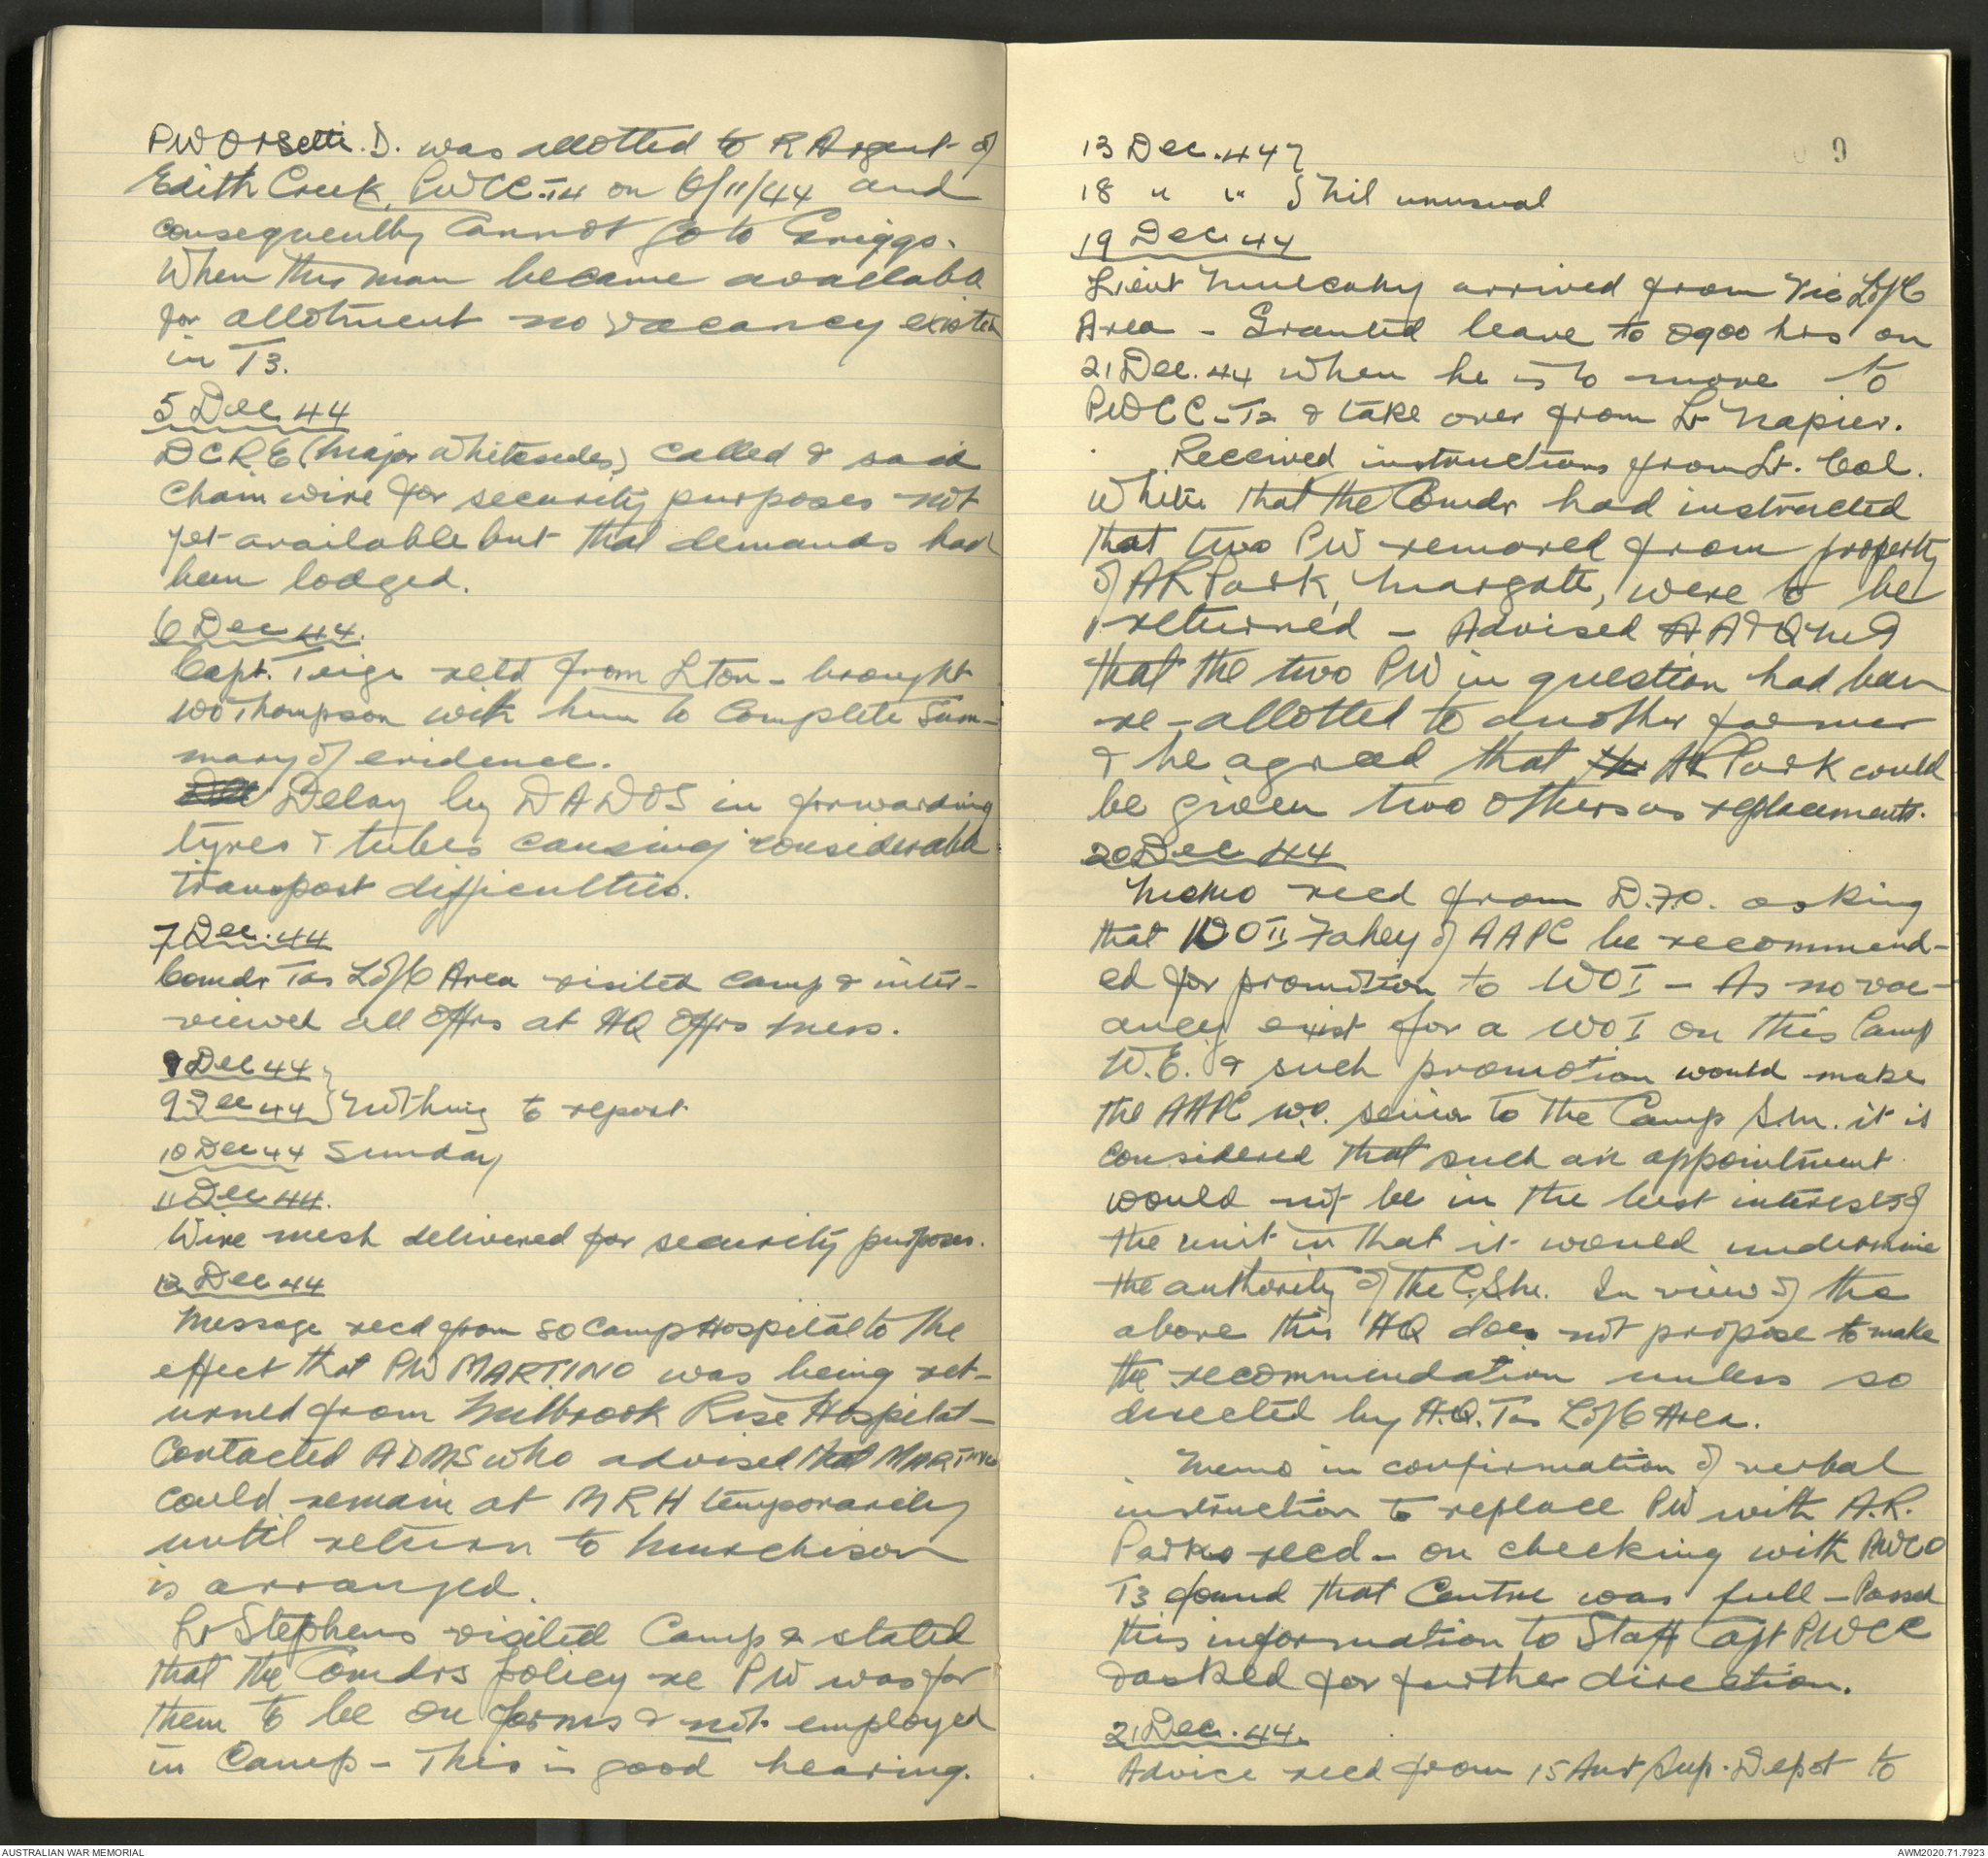 PW Orsetti. D. was allotted to R Argent of
Edith Creek, PWCC-T4 on 6/11/44 and
consequently cannot go to Griggs.
When this man became available
for allotment no vacancy existed
in T3.
5 Dec 44
DCRE (Major Whitesides) called & said
chain wire for security purposes not
yet available but that demands had
been lodged.
6 Dec 44.
Capt. Teige retd from Lton - brought
WO Thompson with him to complete Sum-
mary of evidence.
Delay by DADOS in forwarding
tyres & tubes causing considerable
transport difficulties.
7 Dec. 44
Comdr Tas L of C Area visited camp & inter-
viewed all Offrs at HQ Offrs Mess.
8 Dec 44
9 Dec 44 } Nothing to report
10 Dec 44 Sunday
11 Dec 44.
Wire mesh delivered for security purposes.
12 Dec 44
Message recd from SO Camp Hospital to the
effect that PW MARTINO was being ret-
urned from Milbrook Rise Hospital -
Contacted ADMS who advised that MARTINO
could remain at MRH temporarily
until return to Murchison
is arranged.
Lt Stephens visited Camp & stated
that the Comdrs policy re PW was for
them to be on farms & not employed
in Camp - This is good hearing.
9
13 Dec. 44 }
18 " " } Nil unusual
19 Dec 44
Lieut Mulcahy arrived from Vic L of C
Area - Granted leave to 0900 hrs on
21 Dec. 44 when he is to move to
PWCC-T2 & take over from Lt Napier.
Received instructions from Lt. Col.
White that the Comdr had instructed
that two PW removed from property
of AR Park, Margate, were to be
returned - Advised AA&QMG
that the two PW in question had been
re-allotted to another farmer
& he agreed that the AR Park could
be given two others as replacements.
20 Dec 44
Memo recd from D.F.O. asking
that WO II Fahey of AAPC be recommend-
ed for promotion to WO I - As no vac-
ancy exist for a WO I on this Camp
W.E. & such promotion would make
the AAPC W.O. senior to the Camp S.M. it is
considered that such an appointment
would not be in the best interests of
the unit in that it would undermine
the authority of the C.S.M. In view of the
above this HQ does not propose to make
the recommendation unless so
directed by H.Q. Tas L of C Area.
Memo in confirmation of verbal
instruction to replace PW with A.R.
Parks recd - on checking with PWCO
T3 found that Centre was full - Passed
this information to Staff Capt PWCC
& asked for further direction.
21 Dec. 44.
Advice recd from 15 Aust Sup. Depot to
AUSTRALIAN WAR MEMORIAL
AWM2020.71.7923